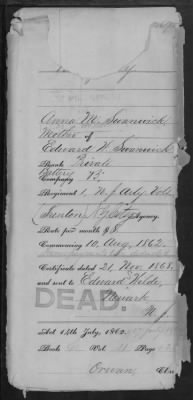 Anna M. Swannick
Mother of
Edward N. Swannick
Rank Private
Battery
Company B,
Regiment 1, N. J. Arty. Vols
Trenton Agency.
Rate per month $8
Commencing 10, Aug, 1862.
Certificate dated 21, Nov. 1868.
and sent to Edward Welde,
Newark
N. J.
DEAD.
Act 14th July, 1862.
Book Vol Page
Clk